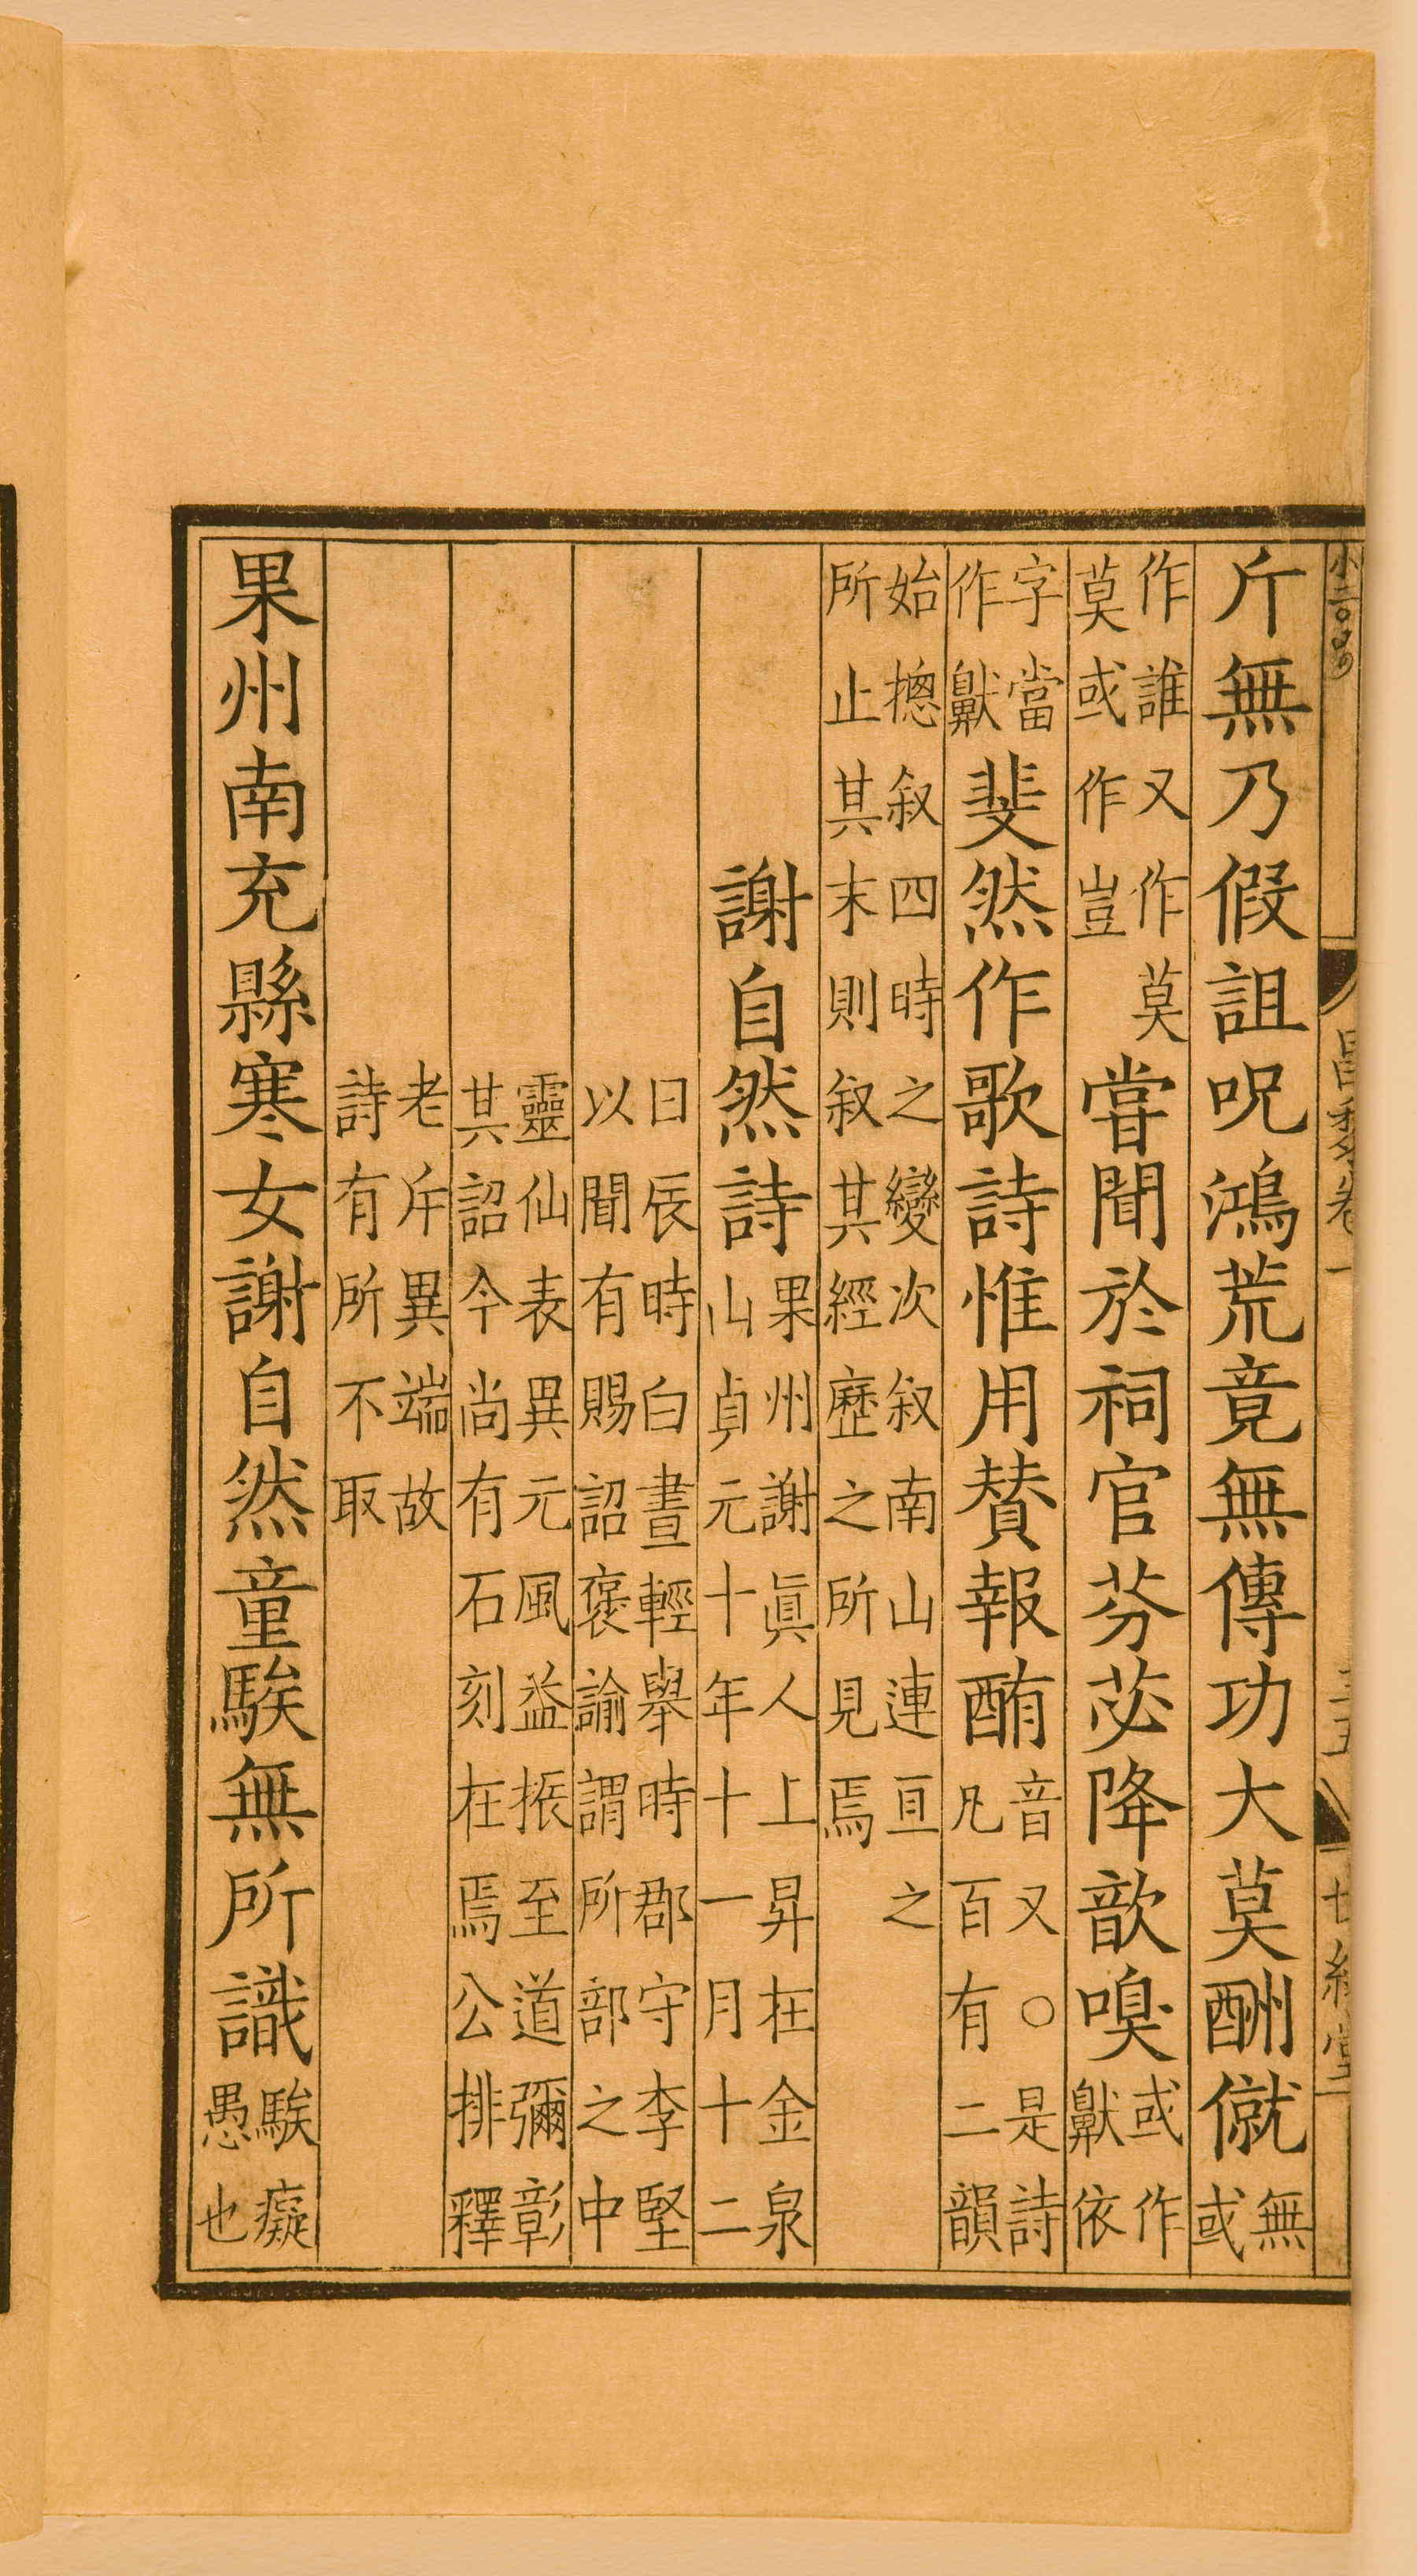 斤無乃假詛呪鴻荒竟無傳功大莫酬僦無或
作誰又作莫莫或作豈嘗聞於祠官芬苾降歆嗅或作齅依
字當作齅斐然作歌詩惟用賛報酭音又○是詩凡百有二韻
始摠叙四時之變次叙南山連亘之所止其末則叙其經歷之所見焉
謝自然詩果州謝眞人上昇在金泉山貞元十年十一月十二
日辰時白晝輕舉時郡守李堅以聞有賜詔褒諭謂所部之中
靈仙表異元風益振至道彌彰其詔今尚有石刻在焉公排釋
老斥異端故詩有所不取
果州南充縣寒女謝自然童騃無所識騃癡愚也